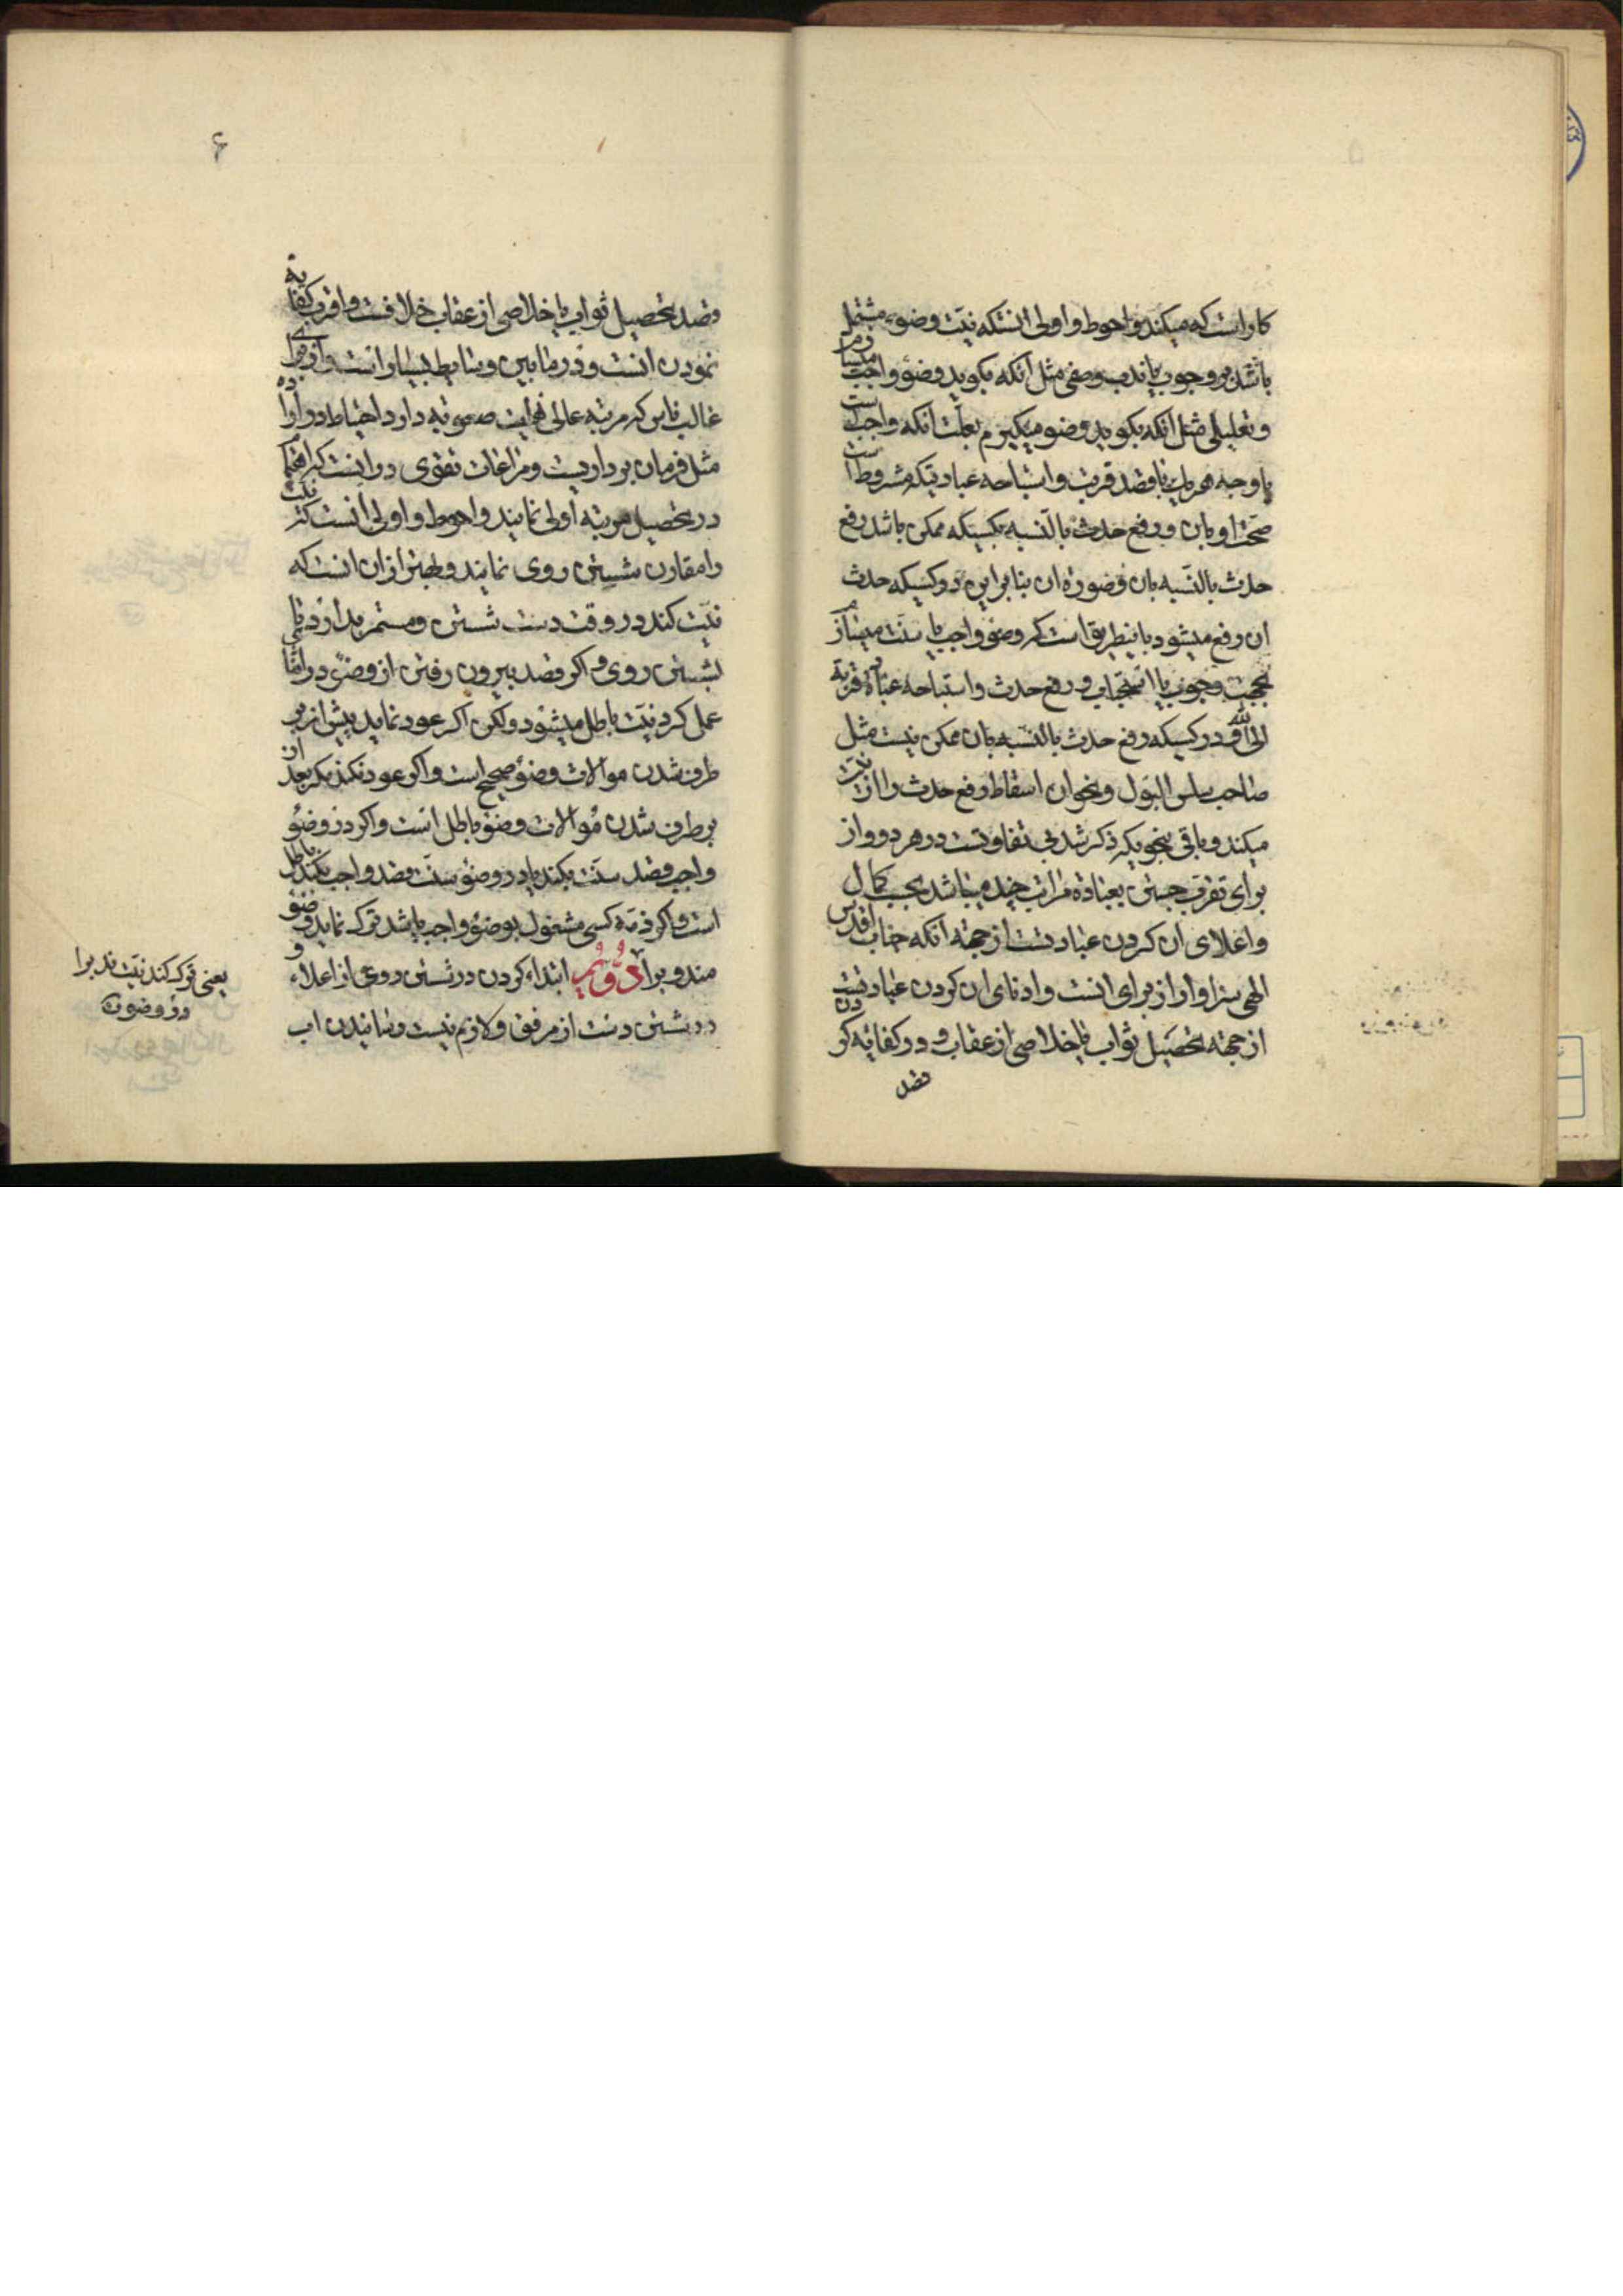 کار است که میکند و احوط و اولی انستکه نیّت وضوء مشتمل
باشد بر وجوب یا ندب وصفی مثل انکه بکوید وضوء واجب میسازم
و تعلیلی مثل انکه بکوید وضو میکیرم بعلّت انکه واجب است
یا وجه هر یک با قصد قربت و استباحه عبادتیکه مشروط است
صحّت او بان و رفع حدث بالنّسبه بکسیکه ممکن باشد رفع
حدث بالنّسبه بان و صورة ان بنا براین در کسیکه حدث
ان رفع میشود باینطریق است که وضوء واجب یا سنّت میسازم
بجهت وجوب یا استحباب و رفع حدث و استباحه عبادة قربة
الی الله و در کسیکه رفع حدث بالنّسبه بان ممکن نیست مثل
صاحب سلس البول و نحو ان اسقاط رفع حدث را از نیّت
میکند و باقی بنحویکه ذکر شد بی تفاوتست در هر دو و از
برای تقرب جستن بعبادة مراتب چند میباشد بحسب کمال
و اعلای ان کردن عبادتست از جهته انکه جناب اقدس
الهی سزاوار از برای انست و ادنای ان کردن عبادتست
از جهته تحصیل ثواب یا خلاصی از عقاب و در کفایه کردن
قصد
۶
قصد تحصیل ثواب یا خلاصی از عقاب خلافست و اقرب کفایه
نمودن انست و در مابین وسایط بسیار است و از برای
غالب ناس که مرتبه عالی نهایت صعوبه دارد احتیاط در اراده
مثل فرمان برداریست و مراعات تقوی در اینست که اهتمام
در تحصیل مرتبه اولی نمایند و احوط و اولی انست که نیّت
را مقارن شستن روی نمایند و بهتر از ان انست که
نیّت کند در وقت دست شستن و مستمر بدارد تا
بشستن روی و اکر قصد بیرون رفتن از وضوء در اثنای
عمل کرد نیّت باطل میشود ولکن اکر عود نماید پیش از بر
طرف شدن موالات وضوء صحیح است و اکر عود نکند مکر بعد از
بر طرف شدن موالات وضوء باطل است و اکر در وضوء
واجب قصد سنّت بکند یا در وضوء سنّت قصد واجب بکند باطل
است و اکر ذمّه کسی مشغول بوضوء واجب باشد ترک نماید وضوء
مندوب را دوّیم ابتداء کردن در شستن روی از اعلاء و
در شستن دست از مرفق و لازم نیست رسانیدن اب
یعنی ترک کند نیّت ندب را
در وضوء